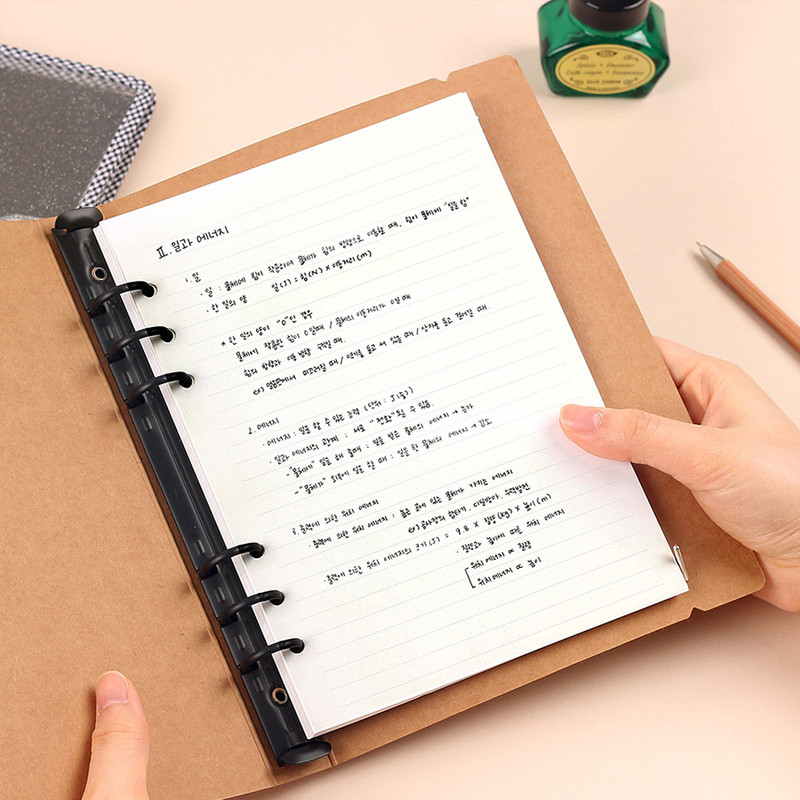 Ⅱ. 일과 에너지
1. 일
· 일 : 물체에 힘이 작용하여 물체가 힘의 방향으로 이동할 때, 힘이 물체에 "일을 함"
· 한 일의 양 일(J) = 힘(N) × 이동거리(m)
* 한 일의 양이 "0"인 경우
물체에 작용한 힘이 0일때 / 물체의 이동거리가 0일 때
힘의 방향과 이동 방향 수직일 때.
ex) 얼음판에서 미끄러질 때 / 역기를 들고 서 있을 때 / 상자를 들고 걸어갈 때.
2. 에너지
· 에너지 : 일을 할 수 있는 능력 (단위 : J(줄))
· 일과 에너지의 관계 : 서로 "전환"될 수 있음.
- "물체에" 일을 해 줄때 : 일을 받은 물체의 에너지 → 증가
- "물체가" 외부에 일을 할 때 : 일을 한 물체의 에너지 → 감소
3. 중력에 의한 위치 에너지
· 중력에 의한 위치 에너지 : 높은 곳에 있는 물체가 가지는 에너지
ex) 공사장의 항타기, 디딜방아, 수력발전
· 중력에 의한 위치 에너지의 크기(J) = 9.8 × 질량(kg) × 높이(m)
· 질량과 높이에 따른 위치 에너지
위치에너지 ∝ 질량
위치에너지 ∝ 높이